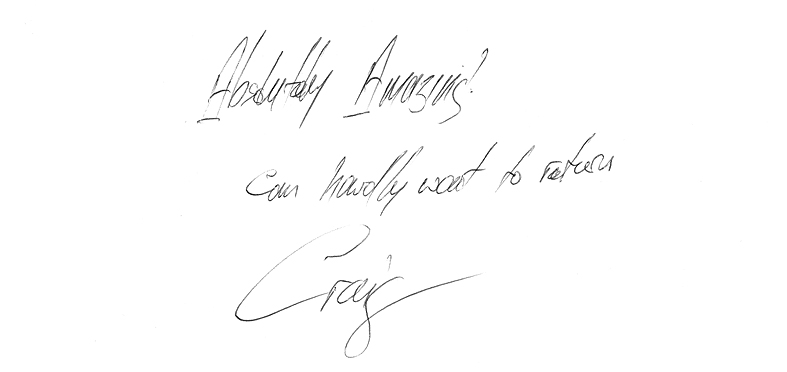 Absolutely Amazing!
can hardly wait to return
Craig